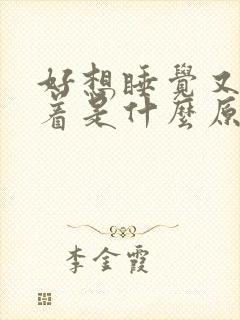 好想睡覺又
着是什麼原
李金霞